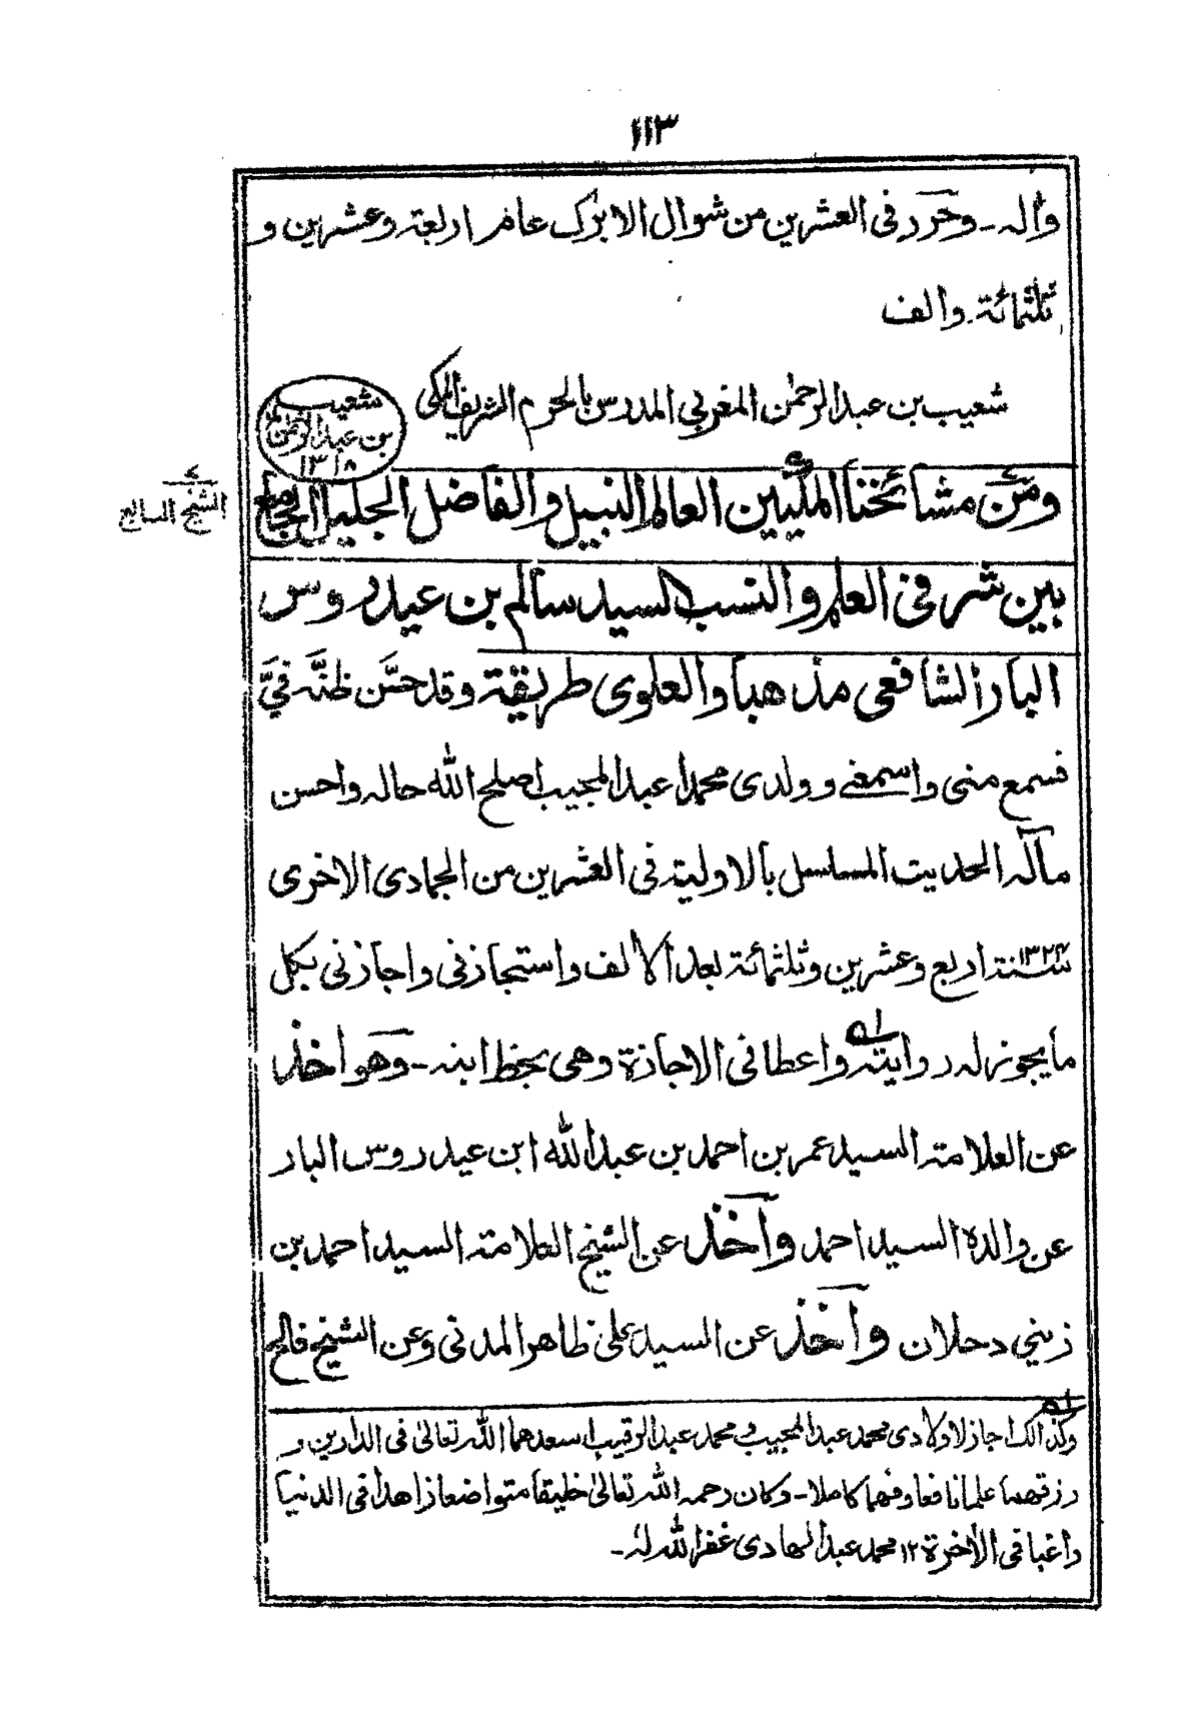 ١١٣
وآله - وحرر فى العشرين من شوال الابرك عام اربعة وعشرين و
ثلثمائة والف
شعيب بن عبد الرحمن المغربي المدرس بالحرم الشريف المكى
شعيب
بن عبد الرحمن
١٣١٨
ومن مشائخنا المكيين العالم النبيل والفاضل الجليل الجامع
الشيخ السابع
بين شرفى العلم والنسب السيد سالم بن عيدروس
البار الشافعى مذهبا والعلوى طريقة وقد حسّن ظنّه فيّ
فسمع منى واسمعنى وولدى محمدا عبد المجيب اصلح الله حاله واحسن
مآله الحديث المسلسل بالاولية فى العشرين من الجمادى الاخرى
سنة ١٣٢٤ اربع وعشرين وثلثمائة بعد الالف واستجازنى واجازنى بكل
ما يجوز له روايته واعطانى الاجازة وهى بخط ابنه - وهو اخذ
عن العلامة السيد عمر بن احمد بن عبد الله ابن عيدروس البار
عن والده السيد احمد واخذ عن الشيخ العلامة السيد احمد بن
زيني دحلان واخذ عن السيد على ظاهر المدنى وعن الشيخ فالح
وكذالك اجاز لاولادى محمد عبد المجيب ومحمد عبد الرقيب اسعدهما الله تعالى فى الدارين و
رزقهما علما نافعا وفهما كاملا - وكان رحمه الله تعالى خليقا متواضعا زاهدا فى الدنيا
راغبا فى الآخرة ١٢ محمد عبد الهادى غفر الله له -